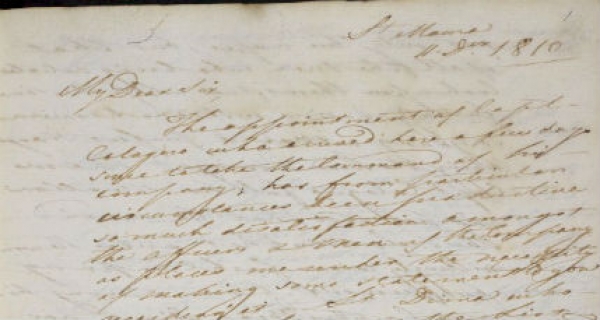 St Maura
11 Dec 1810
My Dear Sir,
The appointment of Capt
who arrived here a few days
since to take the Command of his
company, has from particular
circumstances been productive
so much dissatisfaction amongst
the officers & men of the Company
as places me under the necessity
of making some statement to you
Lt who